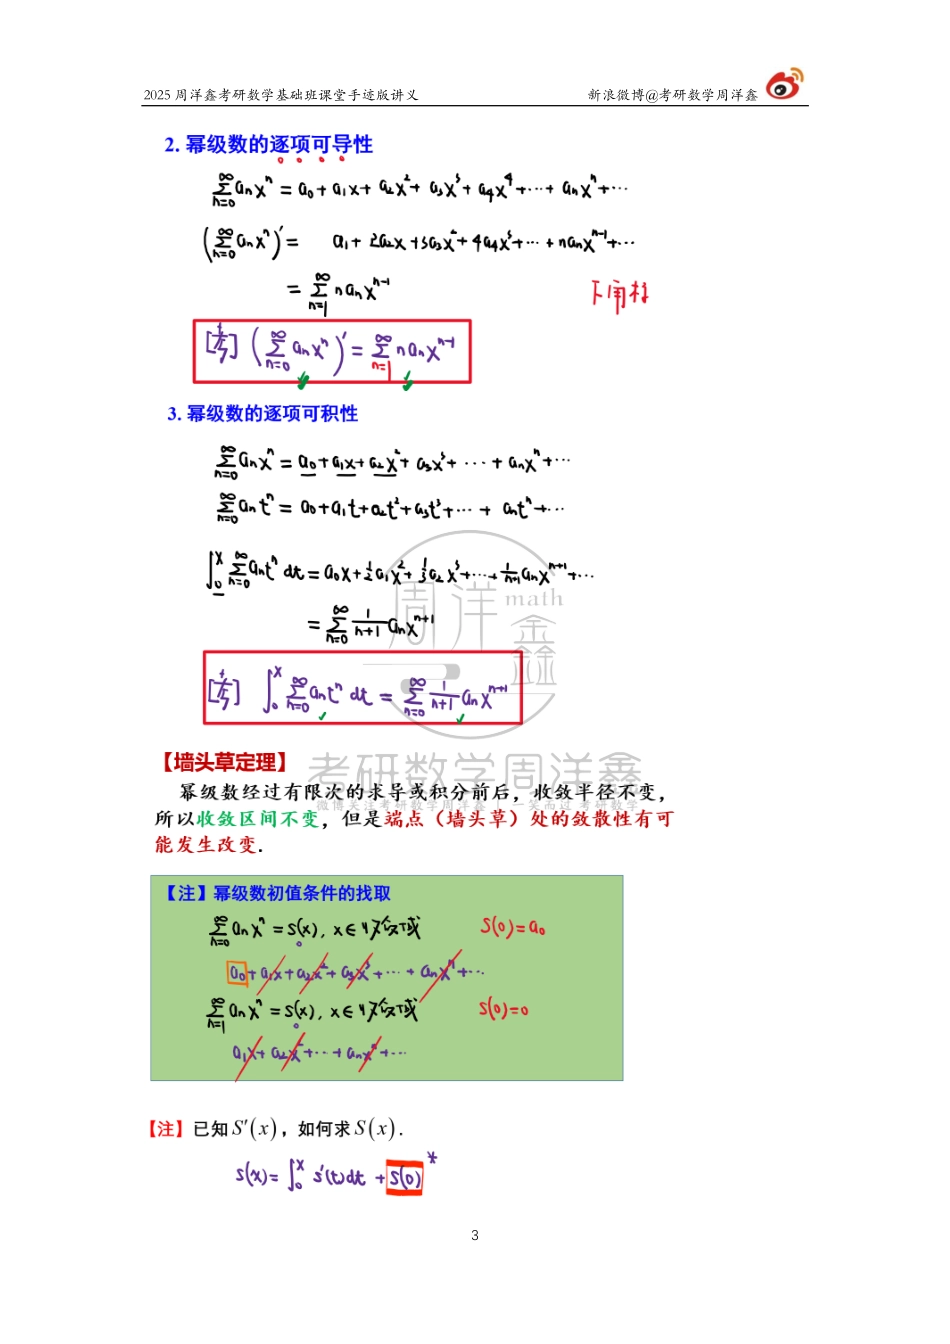 2025 周洋鑫考研数学基础班课堂手迹版讲义 新浪微博@考研数学周洋鑫
2. 幂级数的逐项可导性
∑_{n=0}^{∞} aₙxⁿ = a₀ + a₁x + a₂x² + a₃x³ + a₄x⁴ + ··· + aₙxⁿ + ···
(∑_{n=0}^{∞} aₙxⁿ)′ = a₁ + 2a₂x + 3a₃x² + 4a₄x³ + ··· + naₙxⁿ⁻¹ + ···
= ∑_{n=1}^{∞} naₙxⁿ⁻¹ 下角标
[考] (∑_{n=0}^{∞} aₙxⁿ)′ = ∑_{n=1}^{∞} naₙxⁿ⁻¹
3. 幂级数的逐项可积性
∑_{n=0}^{∞} aₙxⁿ = a₀ + a₁x + a₂x² + a₃x³ + ··· + aₙxⁿ + ···
∑_{n=0}^{∞} aₙtⁿ = a₀ + a₁t + a₂t² + a₃t³ + ··· + aₙtⁿ + ···
∫₀ˣ ∑_{n=0}^{∞} aₙtⁿ dt = a₀x + ½a₁x² + ⅓a₂x³ + ··· + 1/(n+1) aₙxⁿ⁺¹ + ···
= ∑_{n=0}^{∞} 1/(n+1) aₙxⁿ⁺¹
周洋鑫 math
[考] ∫₀ˣ ∑_{n=0}^{∞} aₙtⁿ dt = ∑_{n=0}^{∞} 1/(n+1) aₙxⁿ⁺¹
【墙头草定理】
考研数学周洋鑫
幂级数经过有限次的求导或积分前后，收敛半径不变，
微博关注考研数学周洋鑫 | 一笑而过考研数学
所以收敛区间不变，但是端点（墙头草）处的敛散性有可
能发生改变.
【注】幂级数初值条件的找取
∑_{n=0}^{∞} aₙxⁿ = S(x), x∈收敛域 S(0)=a₀
a₀ + a₁x + a₂x² + a₃x³ + ··· + aₙxⁿ + ···
∑_{n=1}^{∞} aₙxⁿ = S(x), x∈收敛域 S(0)=0
a₁x + a₂x² + ··· + aₙxⁿ + ···
【注】已知 S′(x)，如何求 S(x).
S(x) = ∫₀ˣ S′(t)dt + S(0) *
3